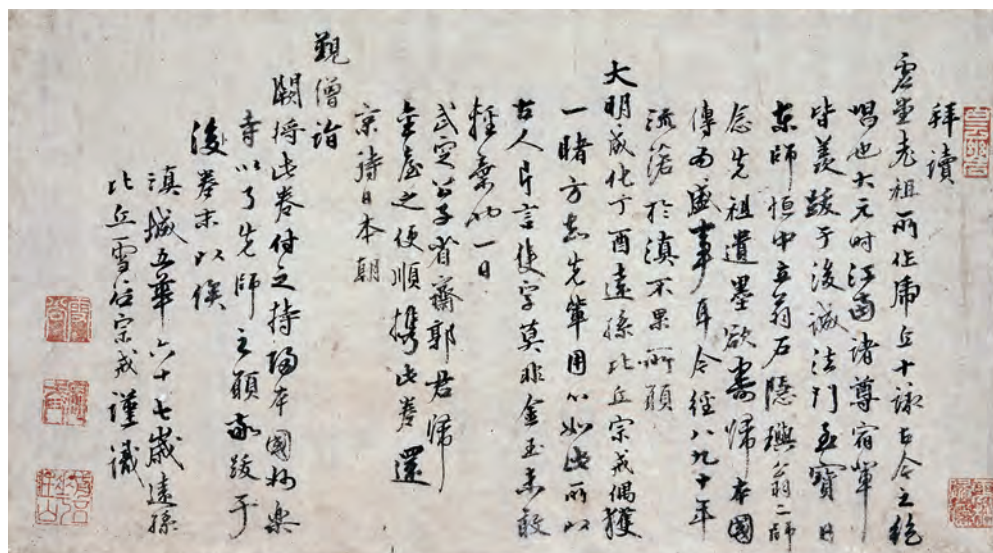 拜讀
虛堂老祖所作虎丘十詠古今之絶
唱也大元时江南诸尊宿軰
皆羡跋于後诚法门至寳日
东師恒中立翁石隱璵翁二師
念先祖遺墨欲齎歸本國
傳為盛事耳今經八九十年
流落於滇不果所願
大明成化丁酉遠孫比丘宗戒偶獲
一睹方知先軰用心如此所以
古人片言隻字莫非金玉未敢
輕棄也一日
武定公子省齋郭君歸
金臺之便順携此卷還
京待日本朝
觐僧詣
闕将此卷付之持歸本國
幸以了先師之願敬跋于
後卷末以俟
滇城五華六十七歲遠孫
比丘雪庭宗戒謹識